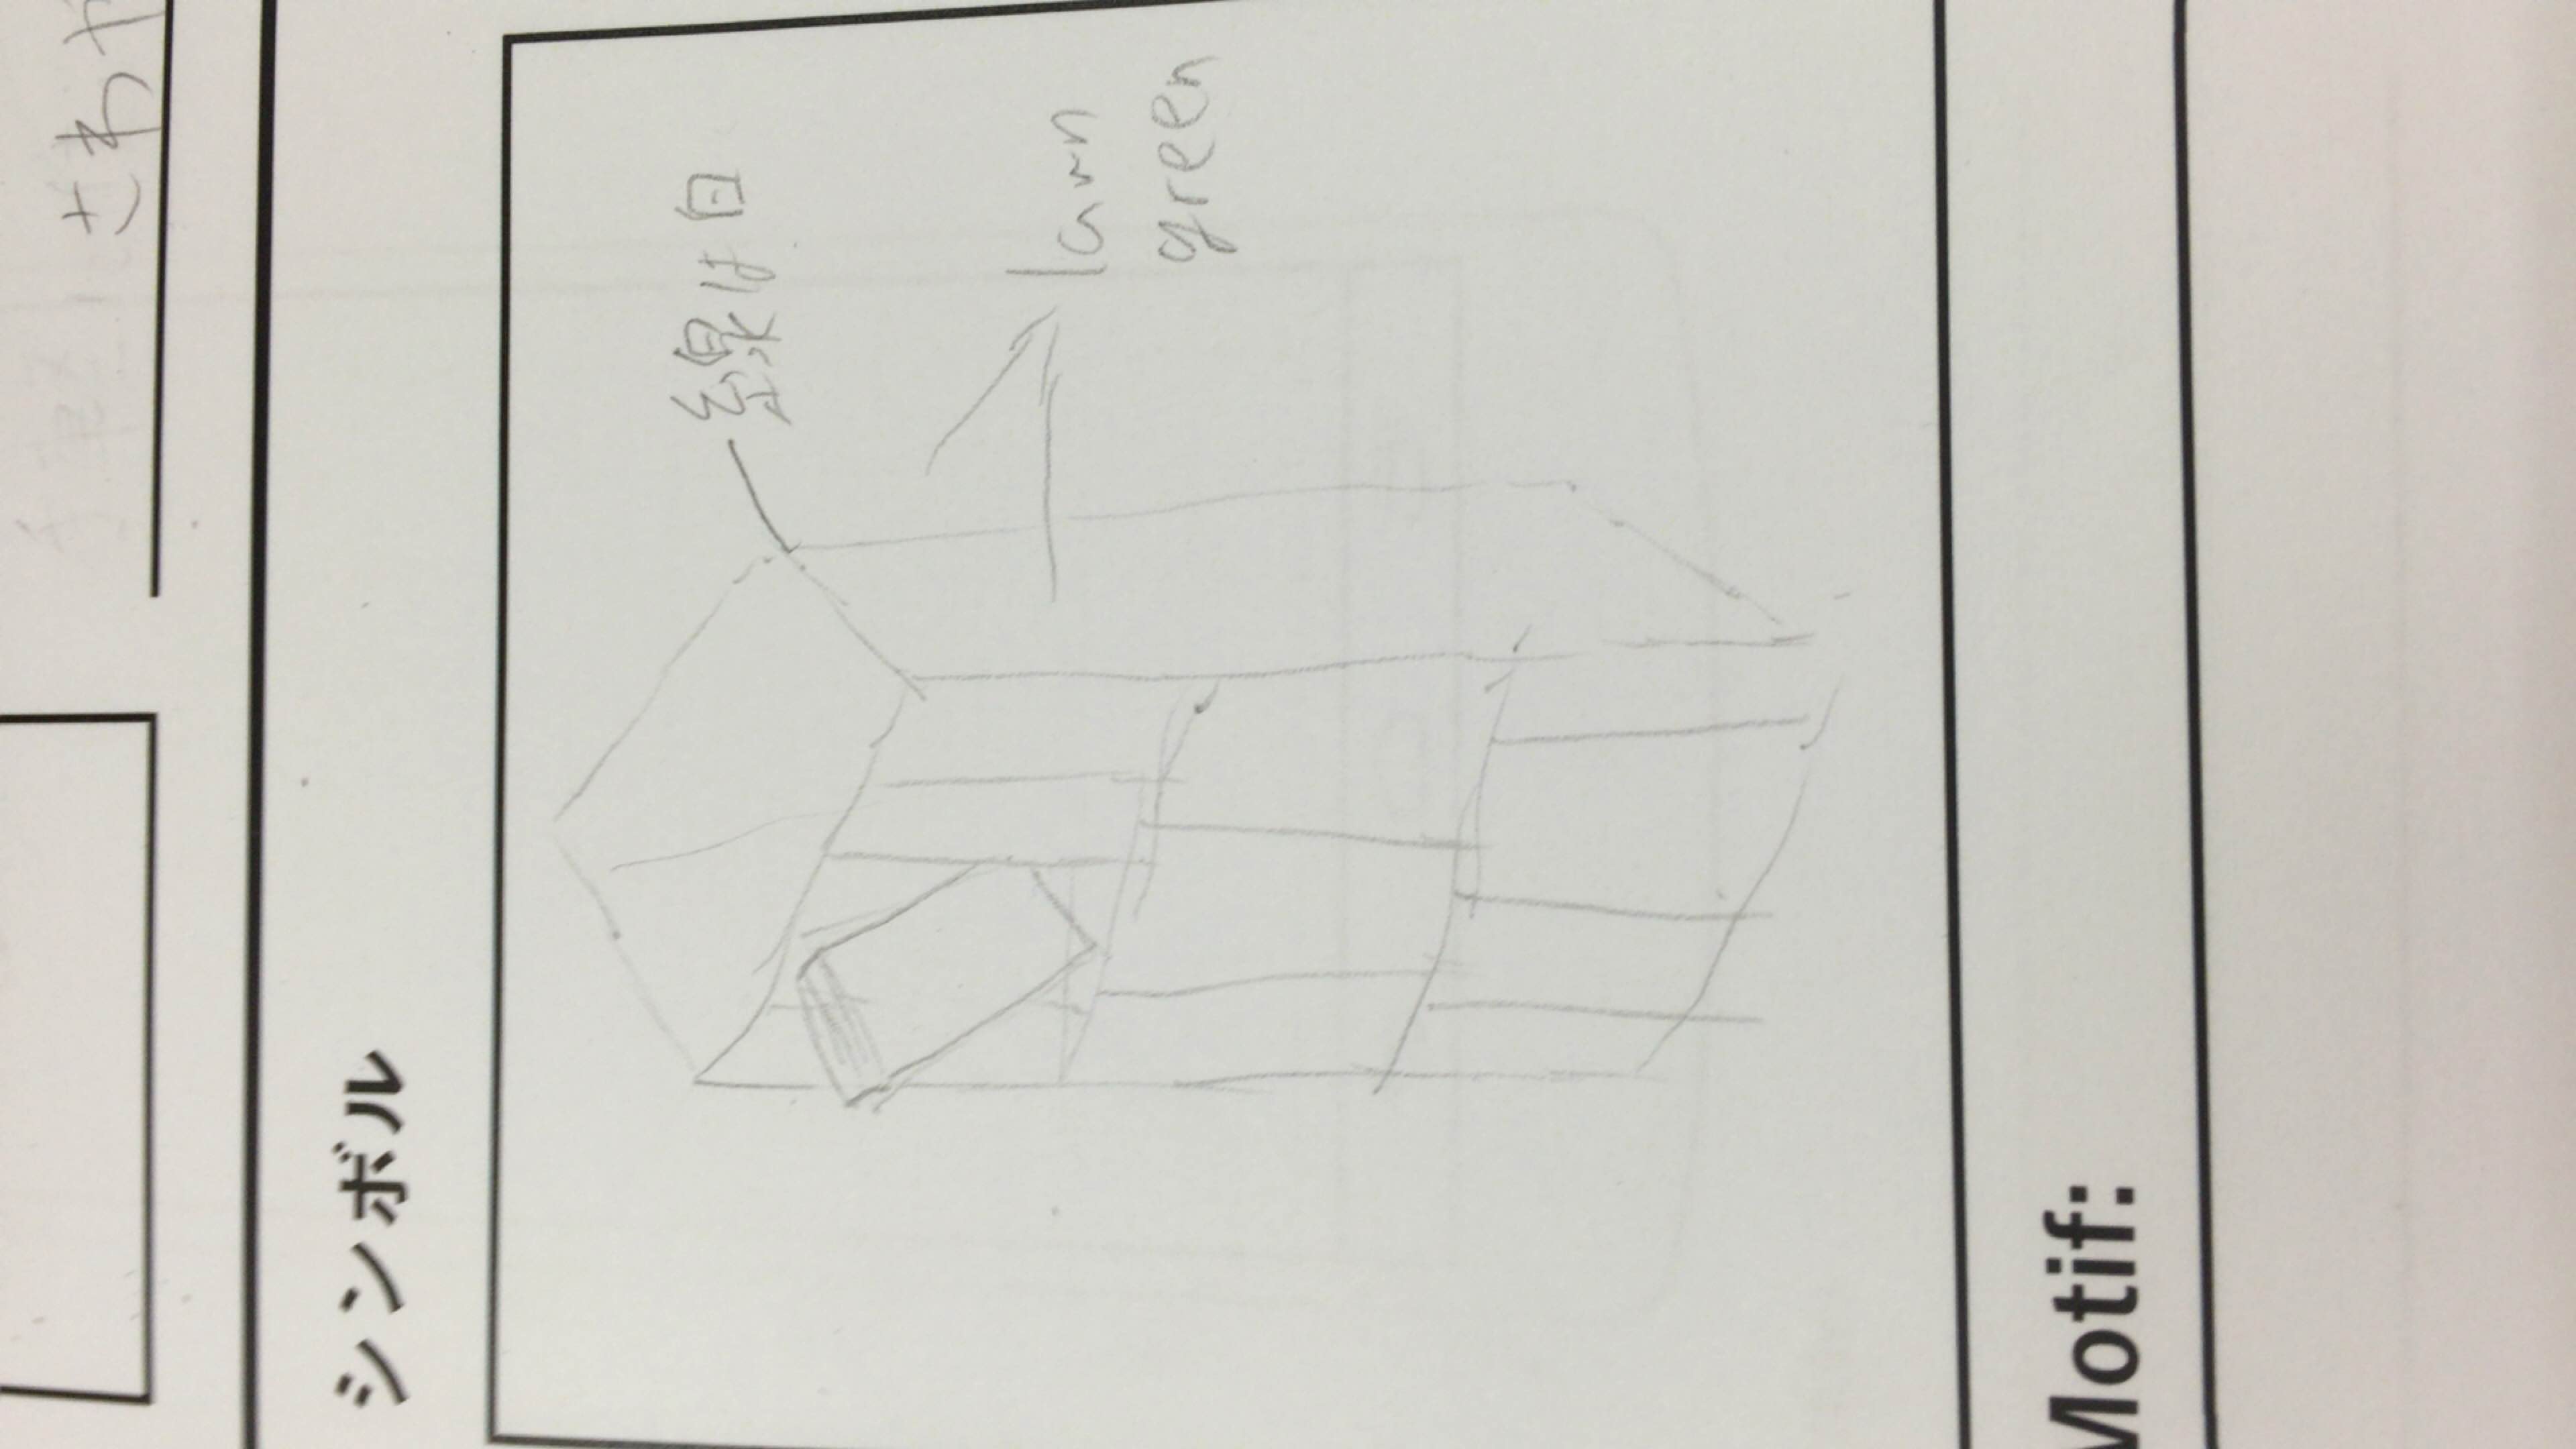 さわや
シンボル
線は白
lawn
green
Motif: